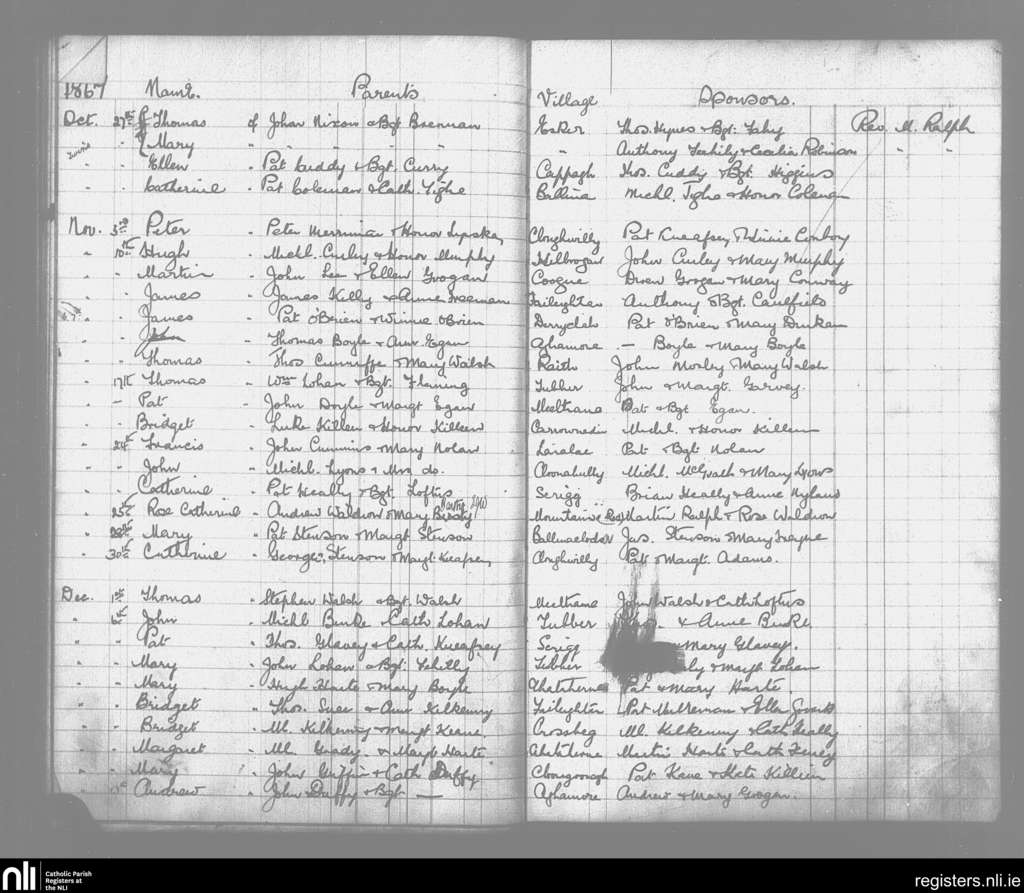 1867 Name. Parents Village Sponsors.
Oct. 27th Thomas of John Nixon & Bgt Brennan Esker Thos. Hynes & Bgt. Fahy Rev. M. Ralph
" Mary " " " " " Anthony & Cecilia Robinson " "
" " Ellen " Pat Cuddy & Bgt. Curry Cappagh Thos. Cuddy & Bgt. Higgins
" " Catherine " Pat Coleman & Cath. Tighe Ballina Michl. Tighe & Honor Coleman
Nov. 3rd Peter " Peter Merriman & Honor Cloghwilly Pat & Winnie Conboy
" 10th Hugh " Michl. Curley & Honor Murphy Kilbrogan John Curley & Mary Murphy
" " Martin " John Lee & Ellen Grogan Coogue Owen Grogan & Mary Conway
" " James " James Killy & Anne Freeman Anthony & Bgt. Caulfield
" " James " Pat O'Brien & Winnie O'Brien Pat O'Brien & Mary
" " John " Thomas Boyle & Ann Egan Aghamore — Boyle & Mary Boyle
" " Thomas " Thos Cunniffe & Mary Walsh Raith John Morley & Mary Walsh
" 17th Thomas " Wm Lohan & Bgt. Fleming Tubber John & Margt. Garvey.
" – Pat " John Doyle & Margt Egan Meeltrane Pat & Bgt Egan.
" " Bridget " Luke Killeen & Honor Killeen Michl. & Honor Killeen
" 24th Francis " John Cummins & Mary Nolan Pat & Bgt Nolan
" " John " Michl. Lyons & Mrs do. Michl. McGrath & Mary Lyons
" " Catherine " Pat Healy & Bgt. Loftus Scrigg Brian Heally & Anne Hyland
" 25th Rose Catherine " Andrew Waldron & Mary Martin Ralph & Rose Waldron
" Mary " Pat Stenson & Margt Stenson Jas. Stenson & Mary
" 30th Catherine " George Stenson & Margt Cloghwilly Pat & Margt. Adams.
Dec. 1st Thomas " Stephen Walsh & Bgt. Walsh Meeltrane John Walsh & Cath Loftus
" 6th John " Michl Burke & Cath Lohan Tubber & Anne Burke
" " Pat " Thos. Glavey & Cath. Scrigg & Mary Glavey.
" " Mary " John Lohan & Bgt. Tubber & Margt Lohan
" " Mary " Hugh Harte & Mary Boyle Pat & Mary Harte.
" " Bridget " Thos. & Ann Kilkenny Pat
" " Bridget " Ml. Kilkenny & Margt Keane Crossbeg Ml. Kilkenny & Cath Heally
" " Margaret " Ml. Grady & Margt Harte Martin Harte & Cath
" " Mary " John Griffin & Cath Duffy Pat Kane & Kate Killeen
" " Andrew " John Duffy & Bgt — Aghamore Andrew & Mary Grogan.
nli Catholic Parish
Registers at
the NLI
registers.nli.ie